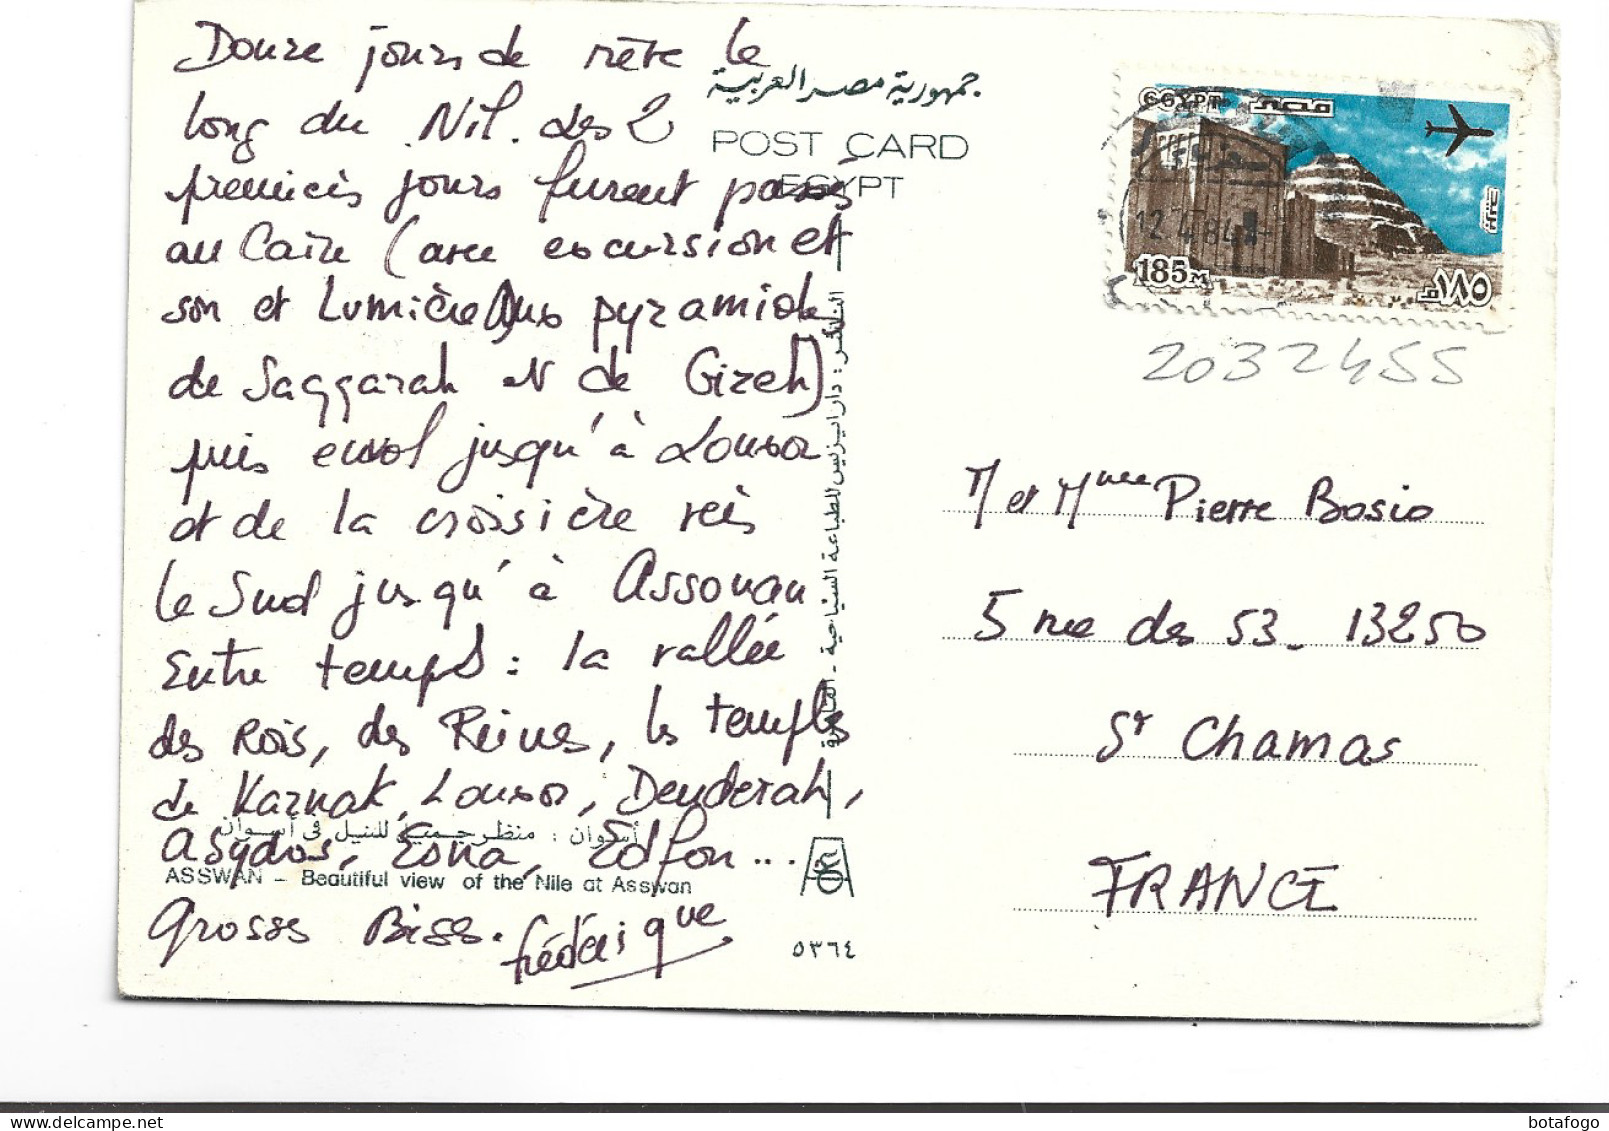 Douze jours de rêve le
long du Nil. Les 2
premiers jours furent passés
au Caire (avec excursion et
son et Lumière aux pyramides
de Saqqarah et de Gizeh)
puis envol jusqu'à Louxor
et de la croisière vers
le Sud jusqu'à Assouan
Entre temps : la vallée
des Rois, des Reines, les temples
de Karnak, Louxor, Denderah,
Abydos, Esna, Edfou...
Grosses Bises. Frédérique
جمهورية مصر العربية
POST CARD
EGYPT
الناشر : دار ايزيس للطباعة السياحية - القاهرة
أسوان : منظر جميل للنيل فى أسوان
ASSWAN - Beautiful view of the Nile at Asswan
٥٣٦٤
EGYPT مصر
12.4.84
185M ١٨٥م
2032455
M et Mme Pierre Bosio
5 rue des 53 - 13250
St Chamas
FRANCE
botafogo